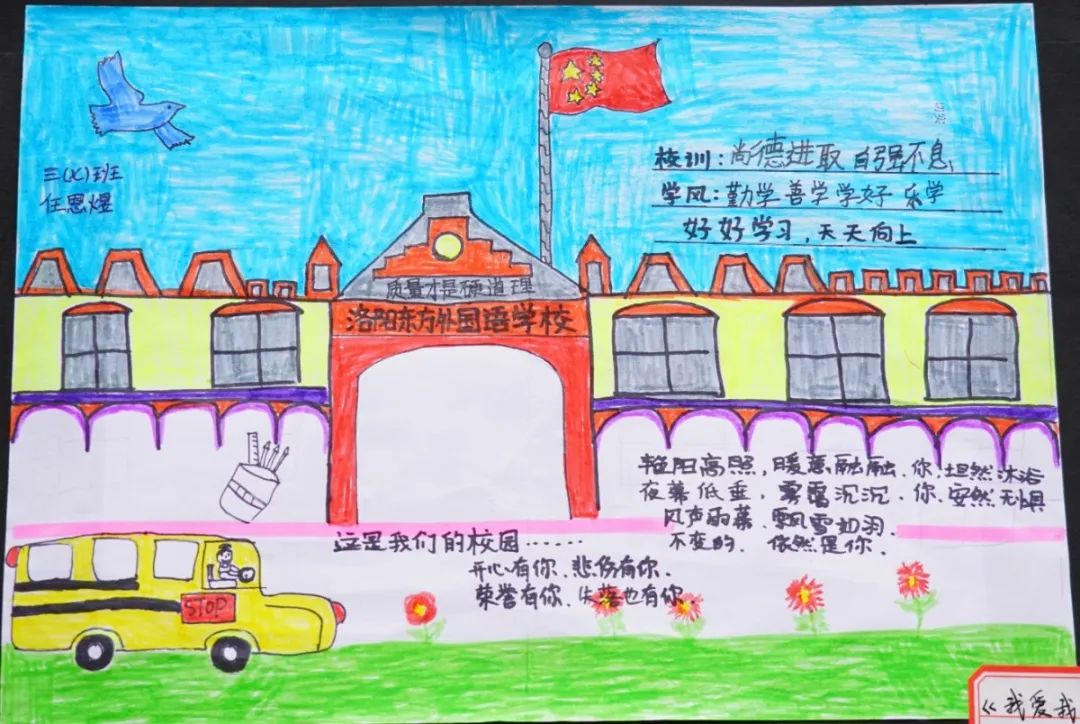 三(八)班
任恩煜
校训:尚德进取 自强不息
学风:勤学善学学好 乐学
好好学习,天天向上
质量才是硬道理
洛阳东方外国语学校
艳阳高照,暖意融融、你,坦然沐浴
夜幕低垂,雾霭沉沉、你,安然无惧
风声雨幕、飘雪如羽、
不变的、依然是你、
这是我们的校园……
开心有你、悲伤有你、
荣誉有你、失落也有你、
STOP
《我爱我